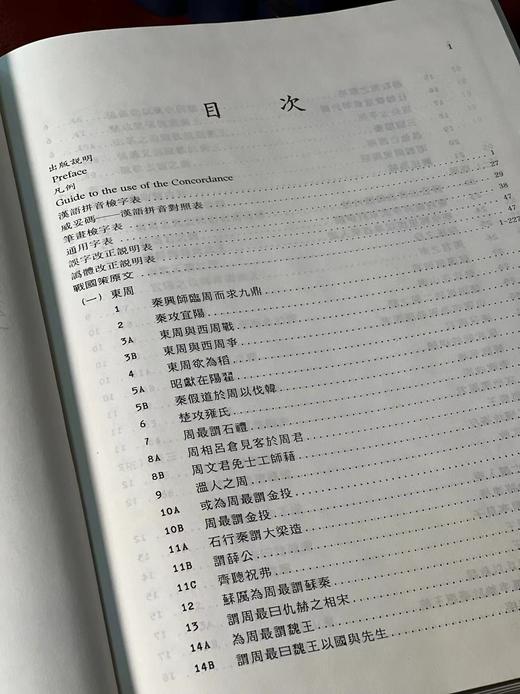 i
目 次
出版說明
Preface
凡例
Guide to the use of the Concordance
漢語拼音檢字表 1
威妥碼——漢語拼音對照表 27
筆畫檢字表 29
通用字表 38
誤字改正說明表 47
譌體改正說明表 47
戰國策原文 1-227
(一) 東周
1 秦興師臨周而求九鼎
2 秦攻宜陽
3A 東周與西周戰
3B 東周與西周爭
4 東周欲為稻
5A 昭獻在陽翟
5B 秦假道於周以伐韓
6 楚攻雍氏
7 周最謂石禮
8A 周相呂倉見客於周君
8B 周文君免士工師藉
9 溫人之周
10A 或為周最謂金投
10B 周最謂金投
11A 石行秦謂大梁造
11B 謂薛公
11C 齊聽祝弗
12 蘇厲為周最謂蘇秦
13 謂周最曰仇赫之相宋
14A 為周最謂魏王
14B 謂周最曰魏王以國與先生